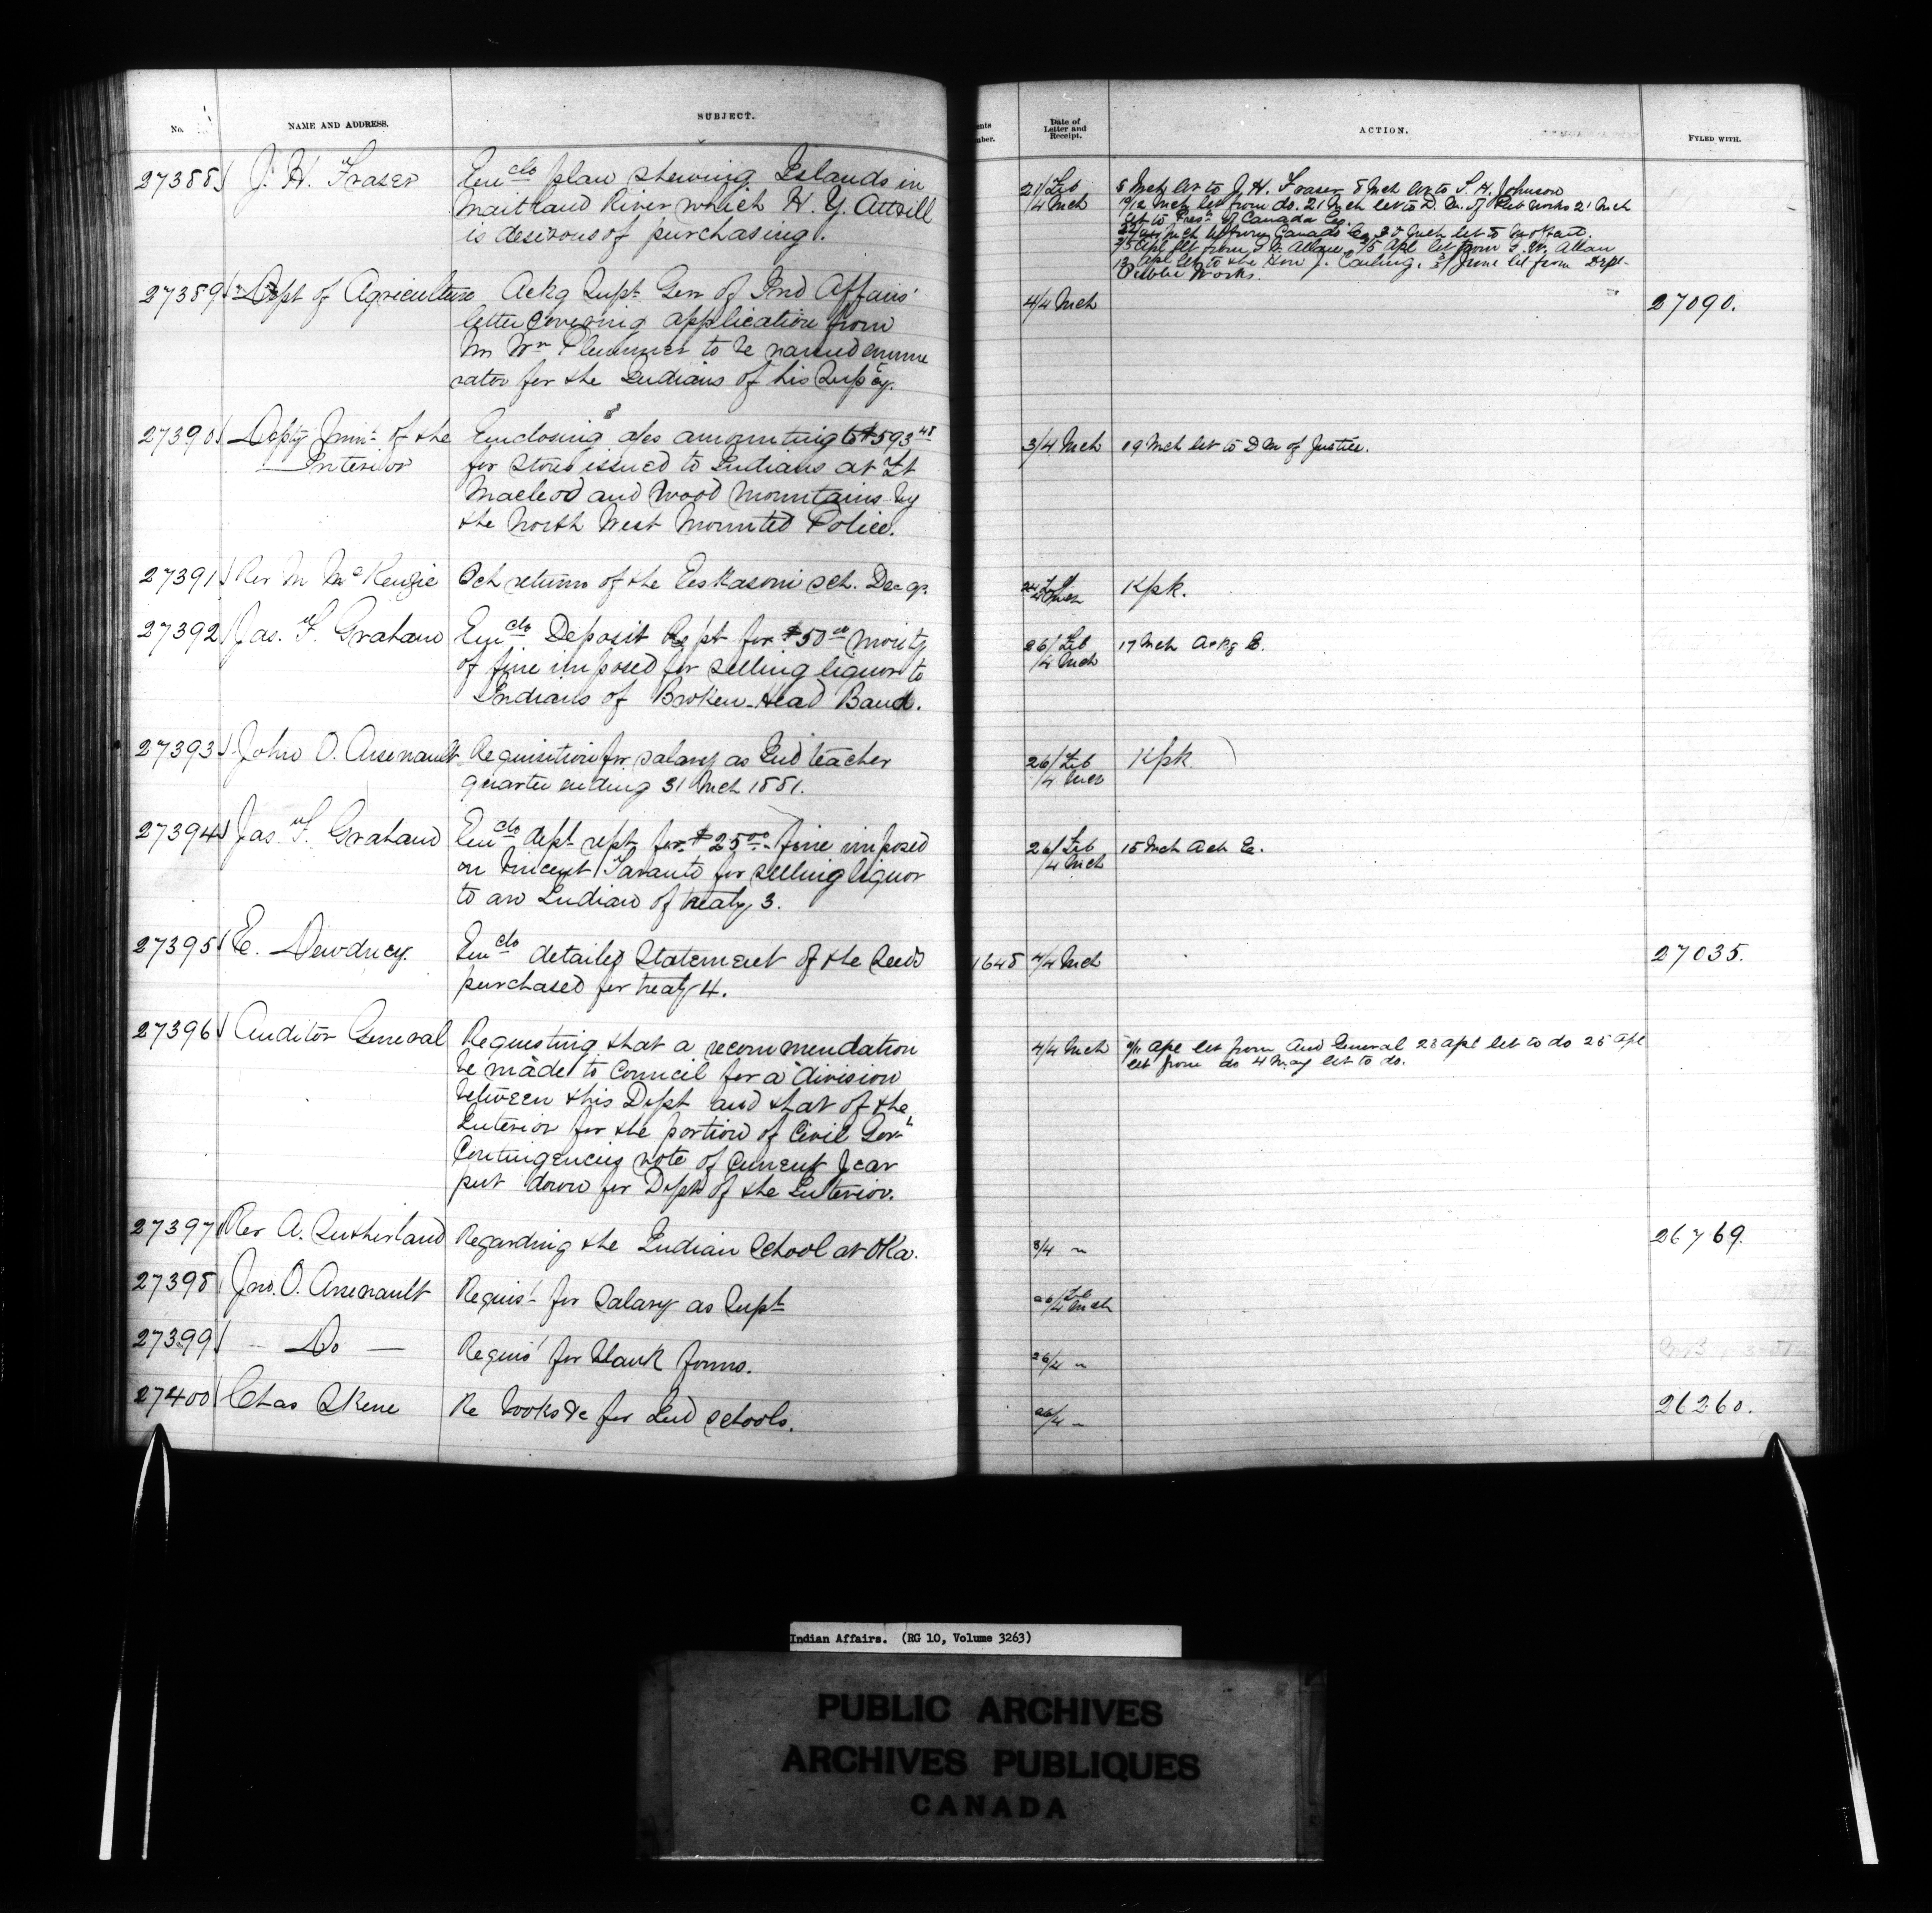 No.
NAME AND ADDRESS.
SUBJECT.
27388 J. H. Fraser
Encdo plan shewing Islands in
Maitland River which H. Y. Attrill
is desirous of purchasing.
27389 Dept of Agriculture
Ackg Supt Gen of Ind Affairs'
letter covering application from
Mr Wm Plummer to be named enume
rator for the Indians of his Supcy.
27390 Depty Minr of the
Interior
Enclosing a/cs amounting to $593 48
for stores issued to Indians at Ft
Macleod and Wood Mountains by
the North West Mounted Police.
27391 Rev M McKenzie
Sch returns of the Eeskasoni sch. Dec qr.
27392 Jas. F. Graham
Encdo Deposit Rept for $50 00 moiety
of fine imposed for selling liquor to
Indians of Broken-Head Band.
27393 John O. Arsenault
Requisition for salary as Ind teacher
quarter ending 31 Mch 1881.
27394 Jas. F. Graham
Encdo dept rept for $25 00 fine imposed
on Vincent for selling liquor
to an Indian of treaty 3.
27395 E. Dewdney.
Encdo detailed Statement of the Seeds
purchased for treaty 4.
27396 Auditor General
Requesting that a recommendation
be made to Council for a division
between this Dept and that of the
Interior for the portion of Civil Govt
Contingencies vote of current year
put down for Dept of the Interior.
27397 Rev A. Sutherland
Regarding the Indian School at Oka.
27398 Jno. O. Arsenault
Requist for Salary as Supt
27399 — Do —
Requist for blank forms.
27400 Chas Skene
Re books &c for Ind schools.
ents
mber.
Date of
Letter and
Receipt.
ACTION.
FYLED WITH.
21/Feb
/4 Mch
8 Mch let to J. H. Fraser 8 Mch let to S. H. Johnson
10/12 Mch let from do. 21 Mch let to D. M. of Pub Works 21 Mch
let to Prest of Canada Co.
Mch let from Canada Co. Mch let to
Apl let from Allan Apl let from Allan
Apl let to the Hon J. Carling. June let from Dept
Public Works.
4/4 Mch
27090.
3/4 Mch
19 Mch let to D M of Justice.
Kpk.
26/Feb
/4 Mch
17 Mch Ackg E.
26/Feb
/4 Mch
Kpk.
26/Feb
/4 Mch
15 Mch Ack E.
1648
4/4 Mch
27035.
4/4 Mch
9/11 Apl let from Aud General 23 Apl let to do 25 Apl
let from do 4 May let to do.
3/4 "
26769.
26/Feb
/4 Mch
26/4 "
26/4 "
26260.
Indian Affairs. (RG 10, Volume 3263)
PUBLIC ARCHIVES
ARCHIVES PUBLIQUES
CANADA